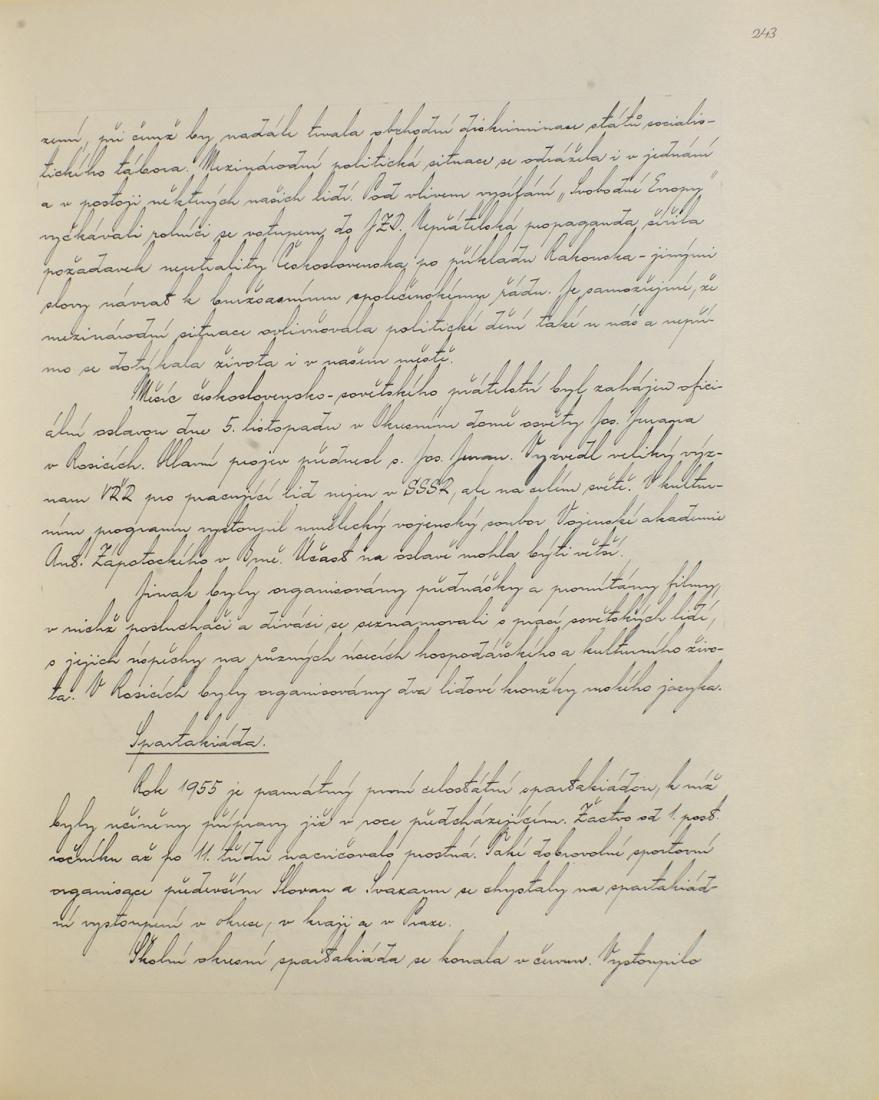 243
zemí, při čemž by nadále trvala obchodní diskriminace států socialis-
tického tábora. Mezinárodní politická situace se odrážela i v jednání
a v postoji některých našich lidí. Pod vlivem vysílání „Svobodné Evropy"
vyčkávali rolníci se vstupem do JZD. Nepřátelská propaganda šířila
požadavek neutrality Československa po příkladu Rakouska - jinými
slovy návrat k buržoasnímu společenskému řádu. Je samozřejmé, že
mezinárodní situace ovlivňovala politické dění také u nás a nepří-
mo se dotýkala života i v našem městě.
Měsíc československo-sovětského přátelství byl zahájen ofici-
ální oslavou dne 5. listopadu v Okresním domě osvěty Jos. Jurana
v Rosicích. Hlavní projev přednesl s. Jos. Juran. Vyzvedl veliký výz-
nam VŘR pro pracující lid nejen v SSSR, ale na celém světě. V kultur-
ním programu vystoupil umělecký vojenský soubor Vojenské akademie
Ant. Zápotockého v Brně. Účast na oslavě mohla býti větší.
Jinak byly organisovány přednášky a promítány filmy,
v nichž posluchači a diváci se seznamovali s prací sovětských lidí,
s jejich úspěchy na různých úsecích hospodářského a kulturního živo-
ta. V Rosicích byly organisovány dva lidové kroužky ruského jazyka.
Spartakiáda.
Rok 1955 je památný první celostátní spartakiádou, k níž
byly učiněny přípravy již v roce předcházejícím. Žactvo od 1. post.
ročníku až po 11. třídu nacvičovalo prostná. Také dobrovolné sportovní
organisace především Slovan a Svazarm se chystaly na spartakiád-
ní vystoupení v okrese, v kraji a v Praze.
Školní okresní spartakiáda se konala v červnu. Vystoupilo